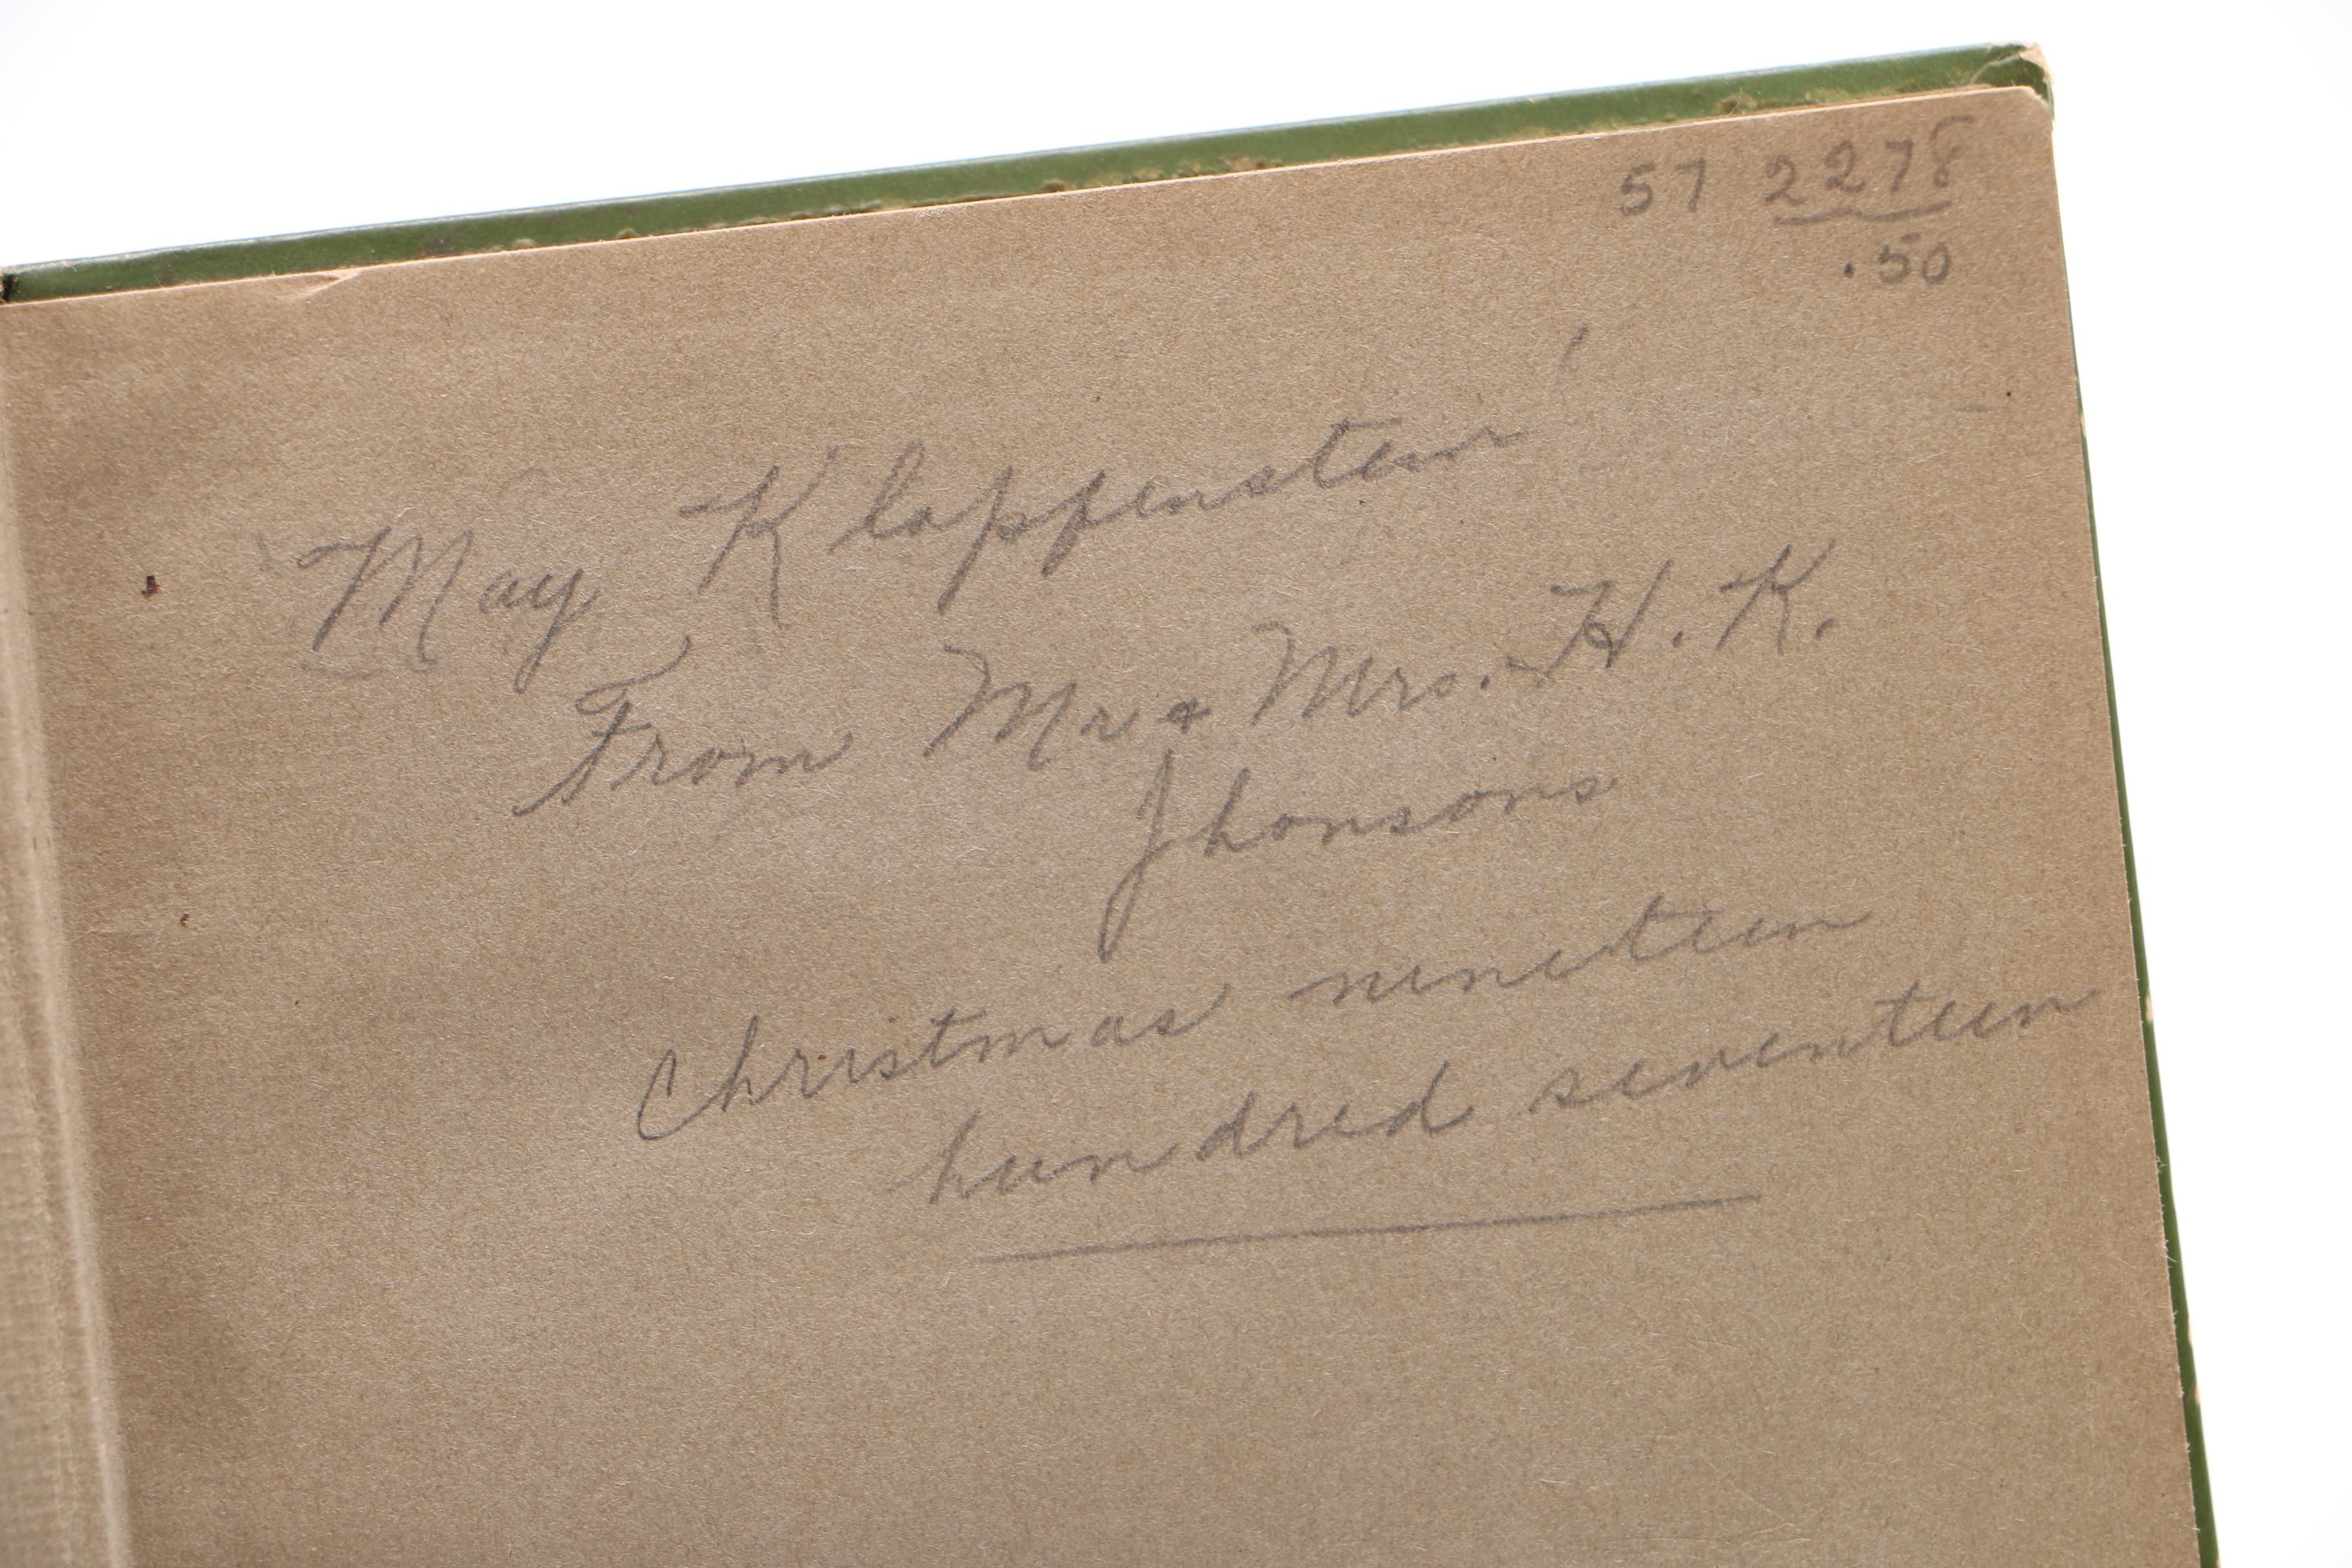 57 2278
.50
May Klopfenstein
From Mr & Mrs. H. K.
Jhonsons
Christmas nineteen
hundred seventeen